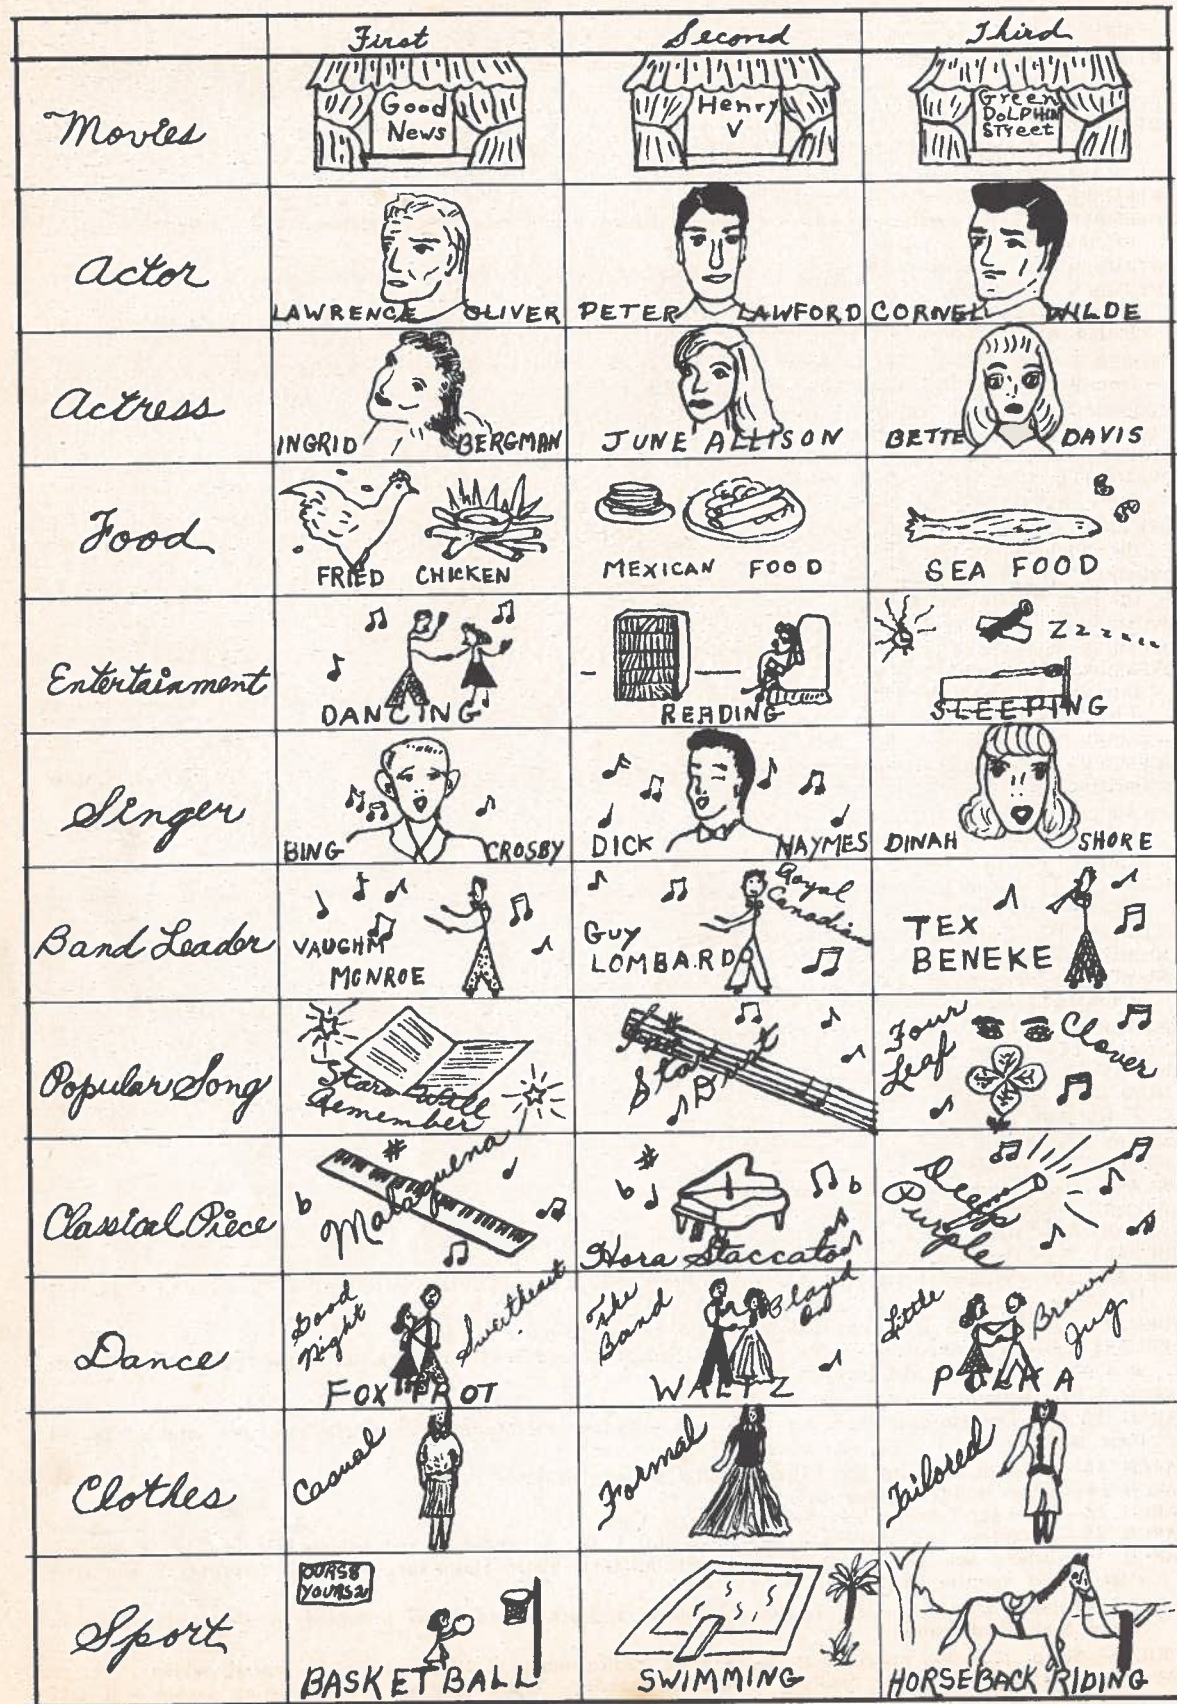 First Second Third
Movies
Good
News
Henry
V
Green
DOLPHIN
STreet
Actor
LAWRENCE OLIVER
PETER LAWFORD
CORNEL WILDE
Actress
INGRID BERGMAN
JUNE ALLISON
BETTE DAVIS
Food
FRIED CHICKEN
MEXICAN FOOD
SEA FOOD
Entertainment
DANCING
READING
Zzzzzz....
SLEEPING
Singer
BING CROSBY
DICK HAYMES
DINAH SHORE
Band Leader
VAUGHN
MONROE
Guy
LOMBARDO
Royal
Canadians
TEX
BENEKE
Popular Song
Stars Will
Remember
Star
Dust
Four
Leaf
Clover
Classical Piece
Malaguena
Hora Staccato
Deep
Purple
Dance
Good
Night
Sweetheart
FOX TROT
The
Band
Played
On
WALTZ
Little
Brown
Jug
POLKA
Clothes
Casual
Formal
Tailored
Sport
OURS 8
YOURS 21
BASKET BALL
SWIMMING
HORSEBACK RIDING